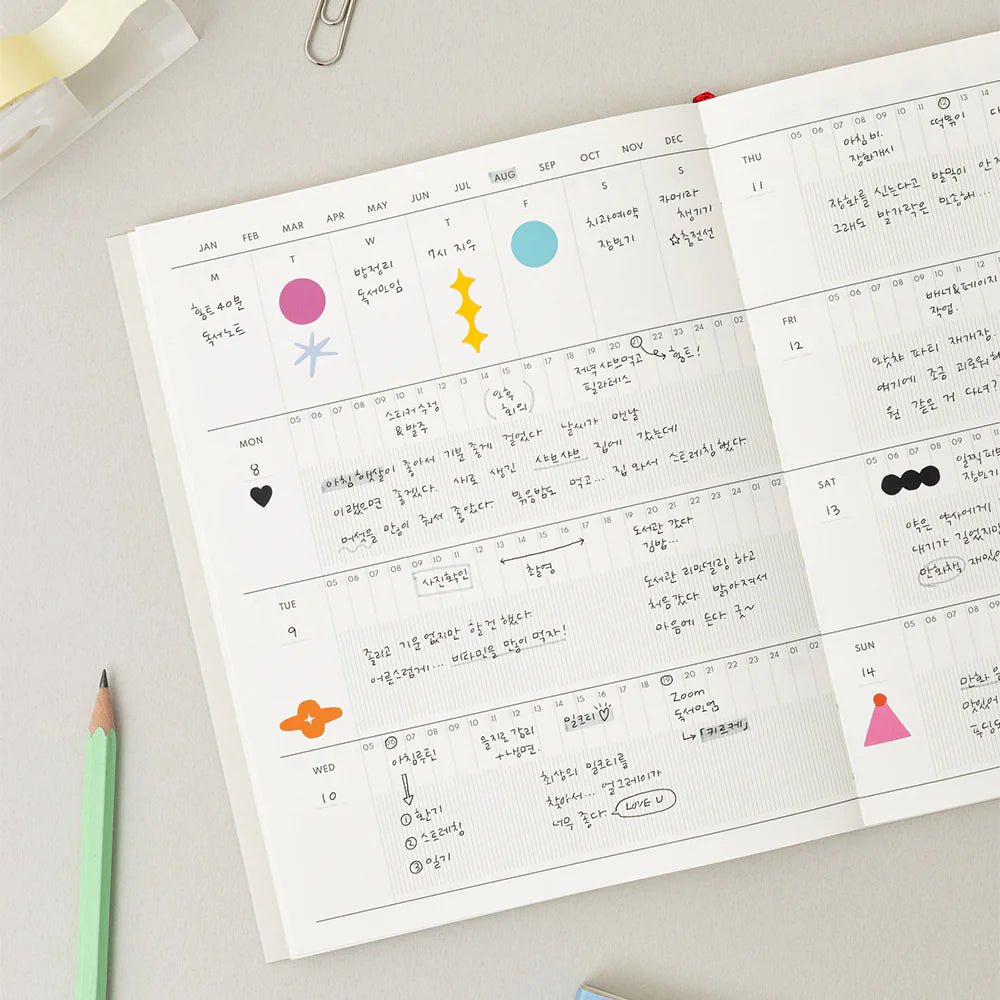 JAN FEB MAR APR MAY JUN JUL AUG SEP OCT NOV DEC
M T W T F S S
홈트 40분
독서노트
방정리
독서모임
7시 지우
치과예약
장보기
카메라
챙기기
☆충전선
MON
8
05 06 07 08 09 10 11 12 13 14 15 16 17 18 19 20 21 22 23 24 01 02
스티커 수정
& 발주
오후
회의
저녁 샤브먹고
필라테스
홈트!
아침 햇살이 좋아서 기분 좋게 걸었다 날씨가 맨날
이랬으면 좋겠다. 새로 생긴 샤브샤브 집에 갔는데
버섯을 많이 줘서 좋았다. 볶음밥도 먹고... 집 와서 스트레칭했다
TUE
9
05 06 07 08 09 10 11 12 13 14 15 16 17 18 19 20 21 22 23 24 01 02
사진확인
촬영
도서관 갔다
김밥...
졸리고 기운 없지만 할 건 했다
어른스럽게... 비타민을 많이 먹자!
도서관 리모델링 하고
처음 갔다 밝아져서
마음에 든다 굿~
WED
10
05 06 07 08 09 10 11 12 13 14 15 16 17 18 19 20 21 22 23 24 01 02
아침루틴
① 환기
② 스트레칭
③ 일기
을지로 감리
+ 냉면.
밀크티 ♡
Zoom
독서모임
↳「키르케」
최상의 밀크티를
찾아서... 얼그레이가
너무 좋다.
LOVE U
THU
11
05 06 07 08 09 10 11 12 13 14
아침 비.
장화개시
떡볶이
장화를 신는다고 발목이
그래도 발가락은 뽀송해...
FRI
12
05 06 07 08 09 10 11 12
배너&페이지
작업.
왓챠 파티 재개장.
여기에 조금
뭔 같은 거 다녀?
SAT
13
05 06 07 08 09 10 11
장보기
약은 약사에게
내기가 길었지만
만화책
SUN
14
05 06 07 08 09
만화
맛있어
푸딩도